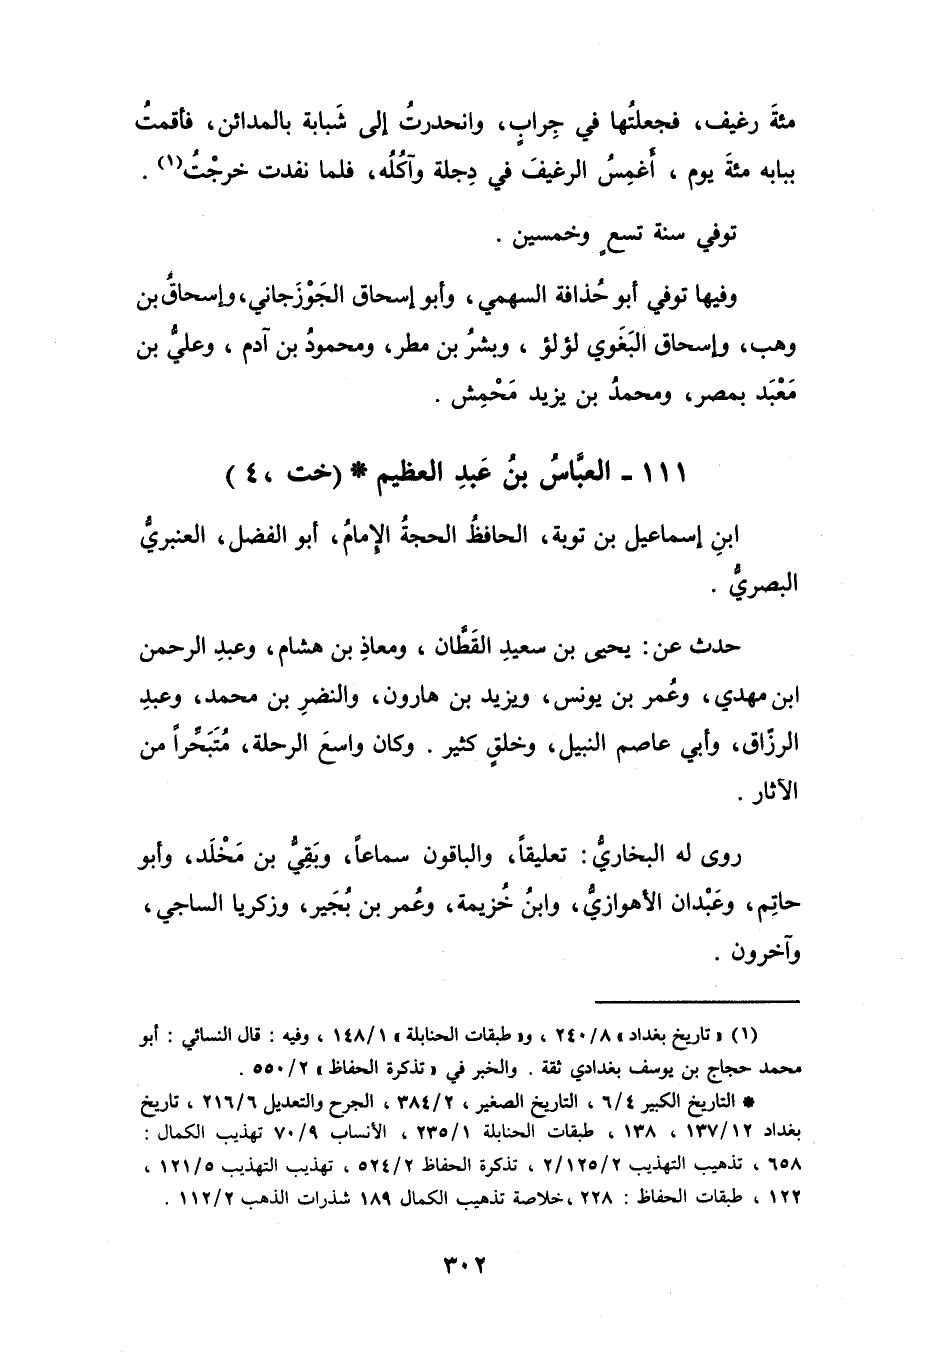 مئةَ رغيف، فجعلتُها في جِرابٍ، وانحدرتُ إلى شَبابة بالمدائن، فأقمتُ
ببابه مئةَ يوم ، أَغمِسُ الرغيفَ في دِجلة وآكُلُه، فلما نفدت خرجْتُ(١) .
توفي سنة تسعٍ وخمسين .
وفيها توفي أبو حُذافة السهمي، وأبو إسحاق الجَوْزَجاني، وإسحاقُ بن
وهب، وإسحاق البَغَوي لؤلؤ ، وبشرُ بن مطر، ومحمودُ بن آدم ، وعليُّ بن
مَعْبَد بمصر، ومحمدُ بن يزيد مَحْمِش .
١١١ - العبَّاسُ بنُ عَبدِ العظيم * (خت ، ٤)
ابنِ إسماعيل بن توبة، الحافظُ الحجةُ الإِمامُ، أبو الفضل، العنبريُّ
البصريُّ .
حدث عن: يحيى بن سعيدِ القَطَّان ، ومعاذِ بن هشام، وعبدِ الرحمن
ابن مهدي، وعُمر بن يونس، ويزيد بن هارون، والنضرِ بن محمد، وعبدِ
الرزّاق، وأبي عاصم النبيل، وخلقٍ كثير . وكان واسعَ الرحلة، مُتَبَحِّراً من
الآثار .
روى له البخاريُّ: تعليقاً، والباقون سماعاً، وبَقِيُّ بن مَخْلَد، وأبو
حاتِم، وعَبْدان الأهوازيُّ، وابنُ خُزيمة، وعُمر بن بُجَير، وزكريا الساجي،
وآخرون .
(١) « تاريخ بغداد » ٢٤٠/٨ ، و« طبقات الحنابلة » ١٤٨/١ ، وفيه : قال النسائي : أبو
محمد حجاج بن يوسف بغدادي ثقة . والخبر في « تذكرة الحفاظ » ٥٥٠/٢ .
* التاريخ الكبير ٦/٤ ، التاريخ الصغير ، ٣٨٤/٢ ، الجرح والتعديل ٢١٦/٦ ، تاريخ
بغداد ١٣٧/١٢ ، ١٣٨ ، طبقات الحنابلة ٢٣٥/١ ، الأنساب ٧٠/٩ تهذيب الكمال :
٦٥٨ ، تذهيب التهذيب ٢/١٢٥/٢ ، تذكرة الحفاظ ٥٢٤/٢ ، تهذيب التهذيب ١٢١/٥ ،
١٢٢ ، طبقات الحفاظ : ٢٢٨ ،خلاصة تذهيب الكمال ١٨٩ شذرات الذهب ١١٢/٢ .
٣٠٢